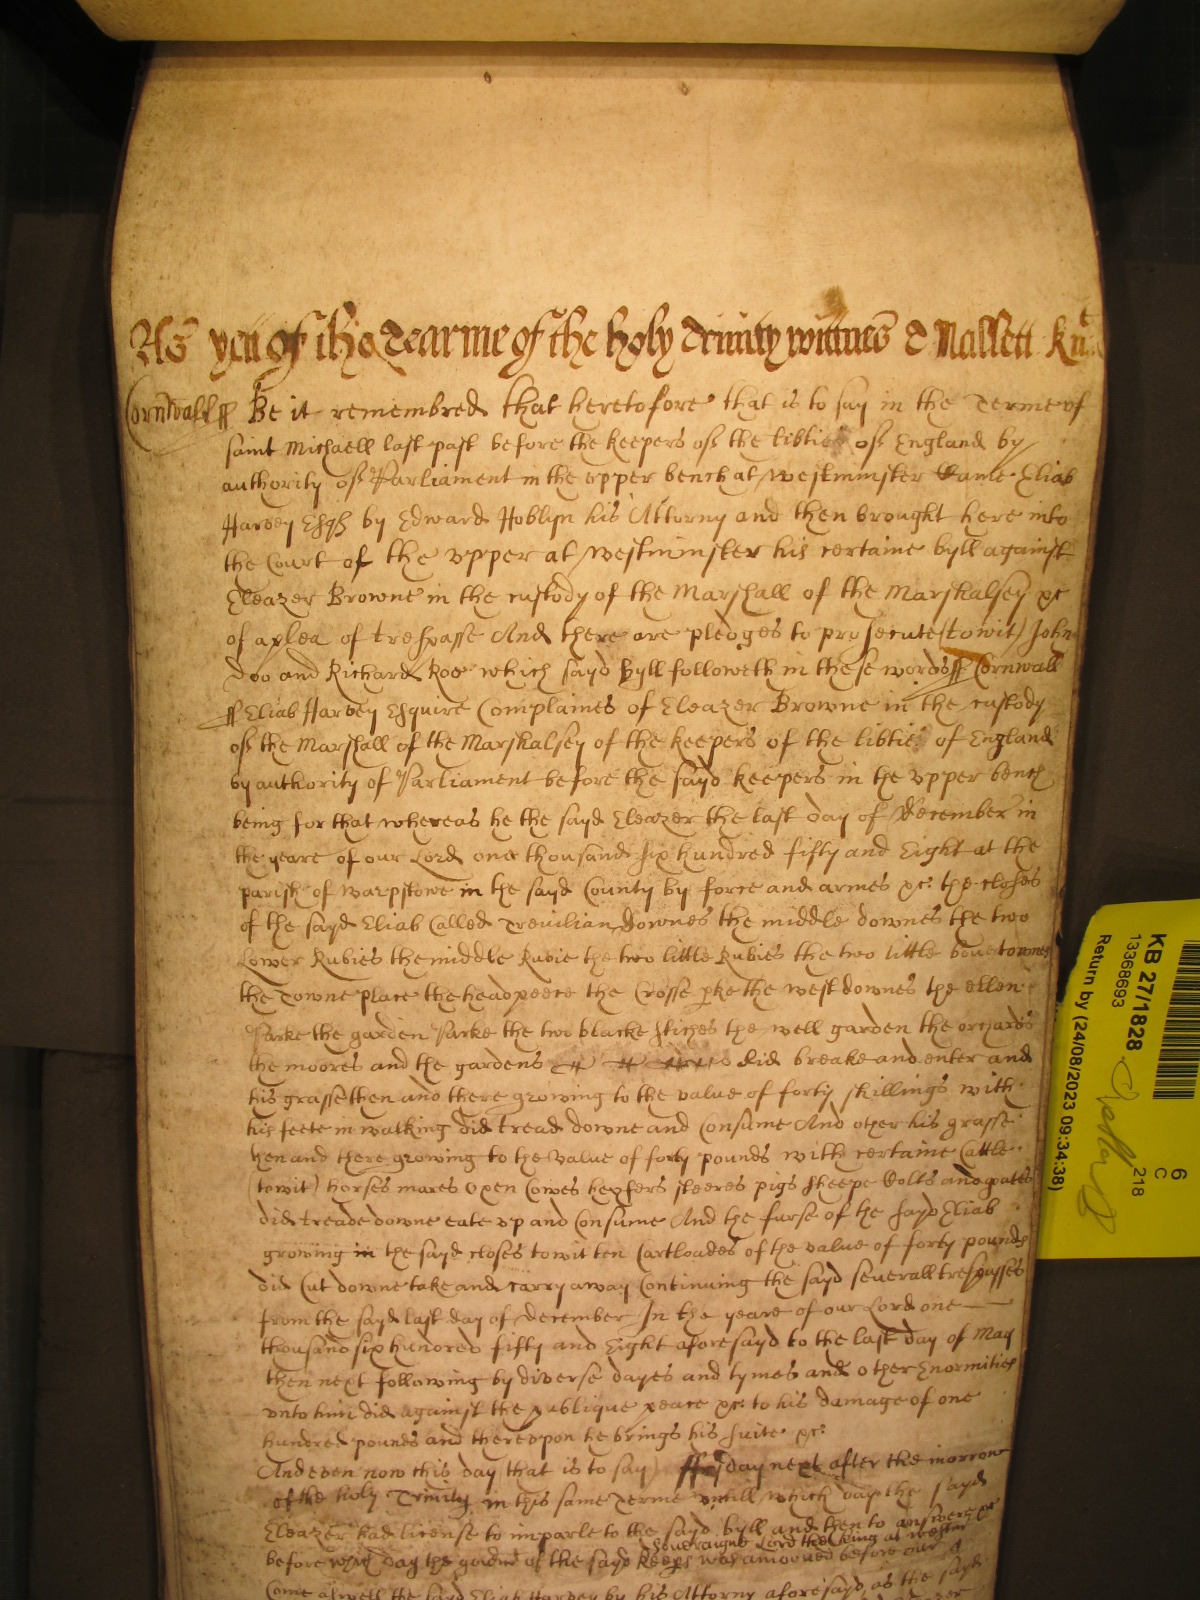 As yett of this Tearme of the holy Trinity wittnes T Mallett Kn
Cornwall ss Be it remembred that heretofore that is to say in the Terme of
saint Michaell last past before the keepers off the libties off England by
authority off Parliament in the vpper bench at westminster Came Eliab
Harvey Esqr by Edward Hoblyn his Attorny and then brought here into
the Court of the vpper at westminster his certaine byll against
Eleazer Browne in the custody of the Marshall of the Marshalsey &c
of a plea of trespasse And there are pledges to prosecute (to wit) John
Doo and Richard Roe which sayd Byll followeth in these words ss Cornwall
ss Eliab Harvey Esquire Complaines of Eleazer Browne in the custody
off the Marshall of the Marshalsey of the keepers of the libties of England
by authority of Parliament before the sayd keepers in the vpper bench
being for that whereas he the sayd Eleazer the last day of December in
the yeare of our Lord one thousand six hundred fifty and Eight at the
parish of warpstowe in the sayd County by force and armes &c the closes
of the sayd Eliab Called Trevilian Downes the middle downes the two
Lower Rubies the middle Rubie the two little Rubies the two little bove townes
the Towne place the head peece the Crosse pke the west downes the ellen
Parke the garden Parke the two blacke stiches the well garden the orchards
the moores and the gardens did breake and enter and
his grasse then and there growing to the value of forty shillings with
his feete in walking did tread downe and Consume And other his grasse
then and there growing to the value of forty pounds with certaine Cattle
(to wit) horses mares oxen Cowes heyfers steeres pigs sheepe Colts and goates
did treade downe eate vp and Consume And the furse of the sayd Eliab
growing in the sayd closes to wit ten Cartloades of the value of forty pounds
did Cut downe take and carry away Continuing the sayd severall trespasses
from the sayd last day of December In the yeare of our Lord one
thousand six hundred fifty and Eight aforesayd to the last day of May
then next following by diverse dayes and tymes and other Enormities
vnto him did against the publique peace &c to his damage of one
hundred pounds and therevpon he brings his suite &c
And even now this day that is to say ffryday next after the morrow
of the holy Trinity in this same Terme vntill which day the sayd
Eleazer had license to imparle to the sayd byll and then to answere &c
Soveraigne Lord the King at westmr
before which day the of the sayd keeps was amooved before our
Come aswell the sayd Eliab Harvey by his Attorny aforesayd as the sayd
KB 27/1828
13368693
Return by (24/08/2023 09:34:38)
6
C
218